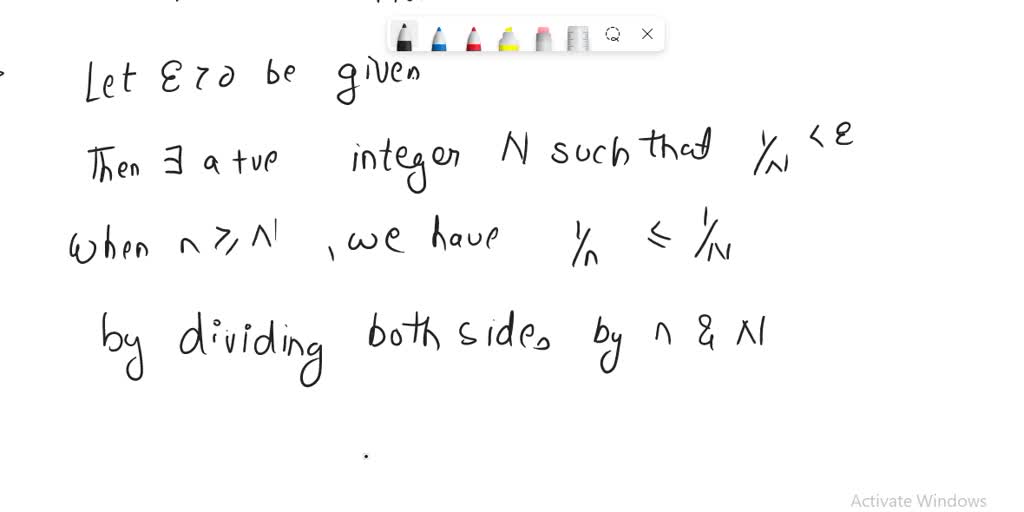 Let ε > 0 be given
Then ∃ a +ve integer N such that 1/N < ε
when n ≥ N , we have 1/n ≤ 1/N
by dividing both sides by n & N
Activate Windows